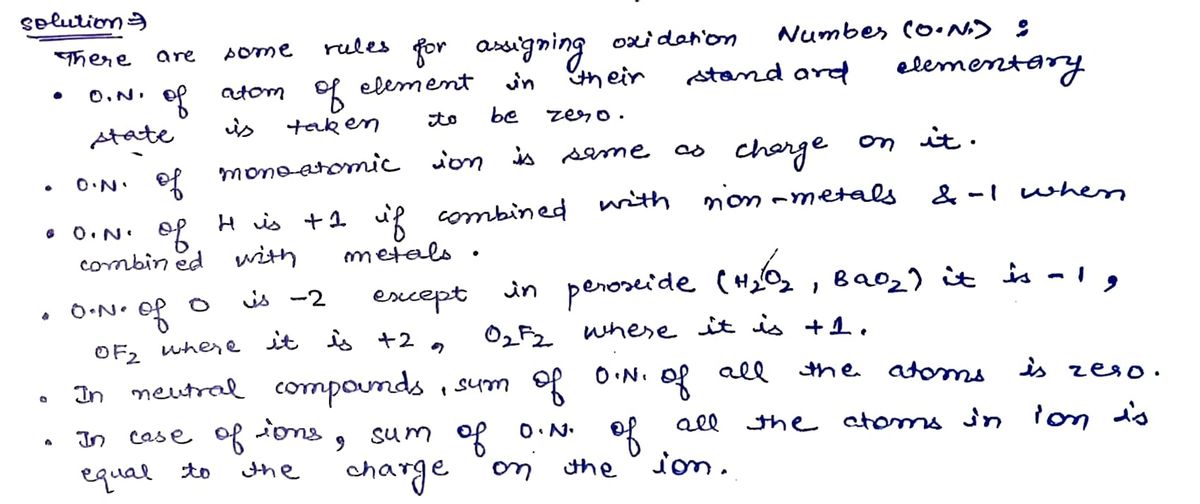 Solution ⇒
There are some rules for assigning oxidation Number (O.N.) :
• O.N. of atom of element in their standard elementary
state is taken to be zero.
• O.N. of monoatomic ion is same as charge on it.
• O.N. of H is +1 if combined with non-metals & -1 when
combined with metals.
• O.N. of O is -2 except in peroxide (H₂O₂, BaO₂) it is -1,
OF₂ where it is +2, O₂F₂ where it is +1.
• In neutral compounds, sum of O.N. of all the atoms is zero.
• In case of ions, sum of O.N. of all the atoms in ion is
equal to the charge on the ion.